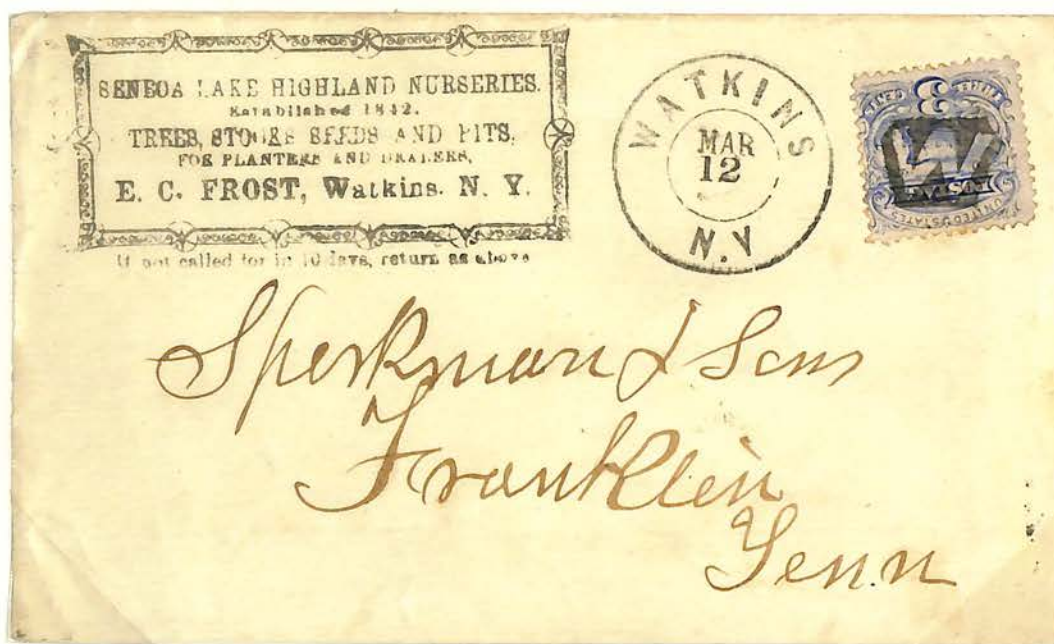 SENECA LAKE HIGHLAND NURSERIES.
Established 1842.
TREES, STOCKS SEEDS AND PITS.
FOR PLANTERS AND DEALERS,
E. C. FROST, Watkins. N. Y.
If not called for in 10 days, return as above
WATKINS
MAR
12
N.Y
THREE CENTS
POSTAGE
UNITED STATES
Sparkman & Sons
Franklin
Tenn